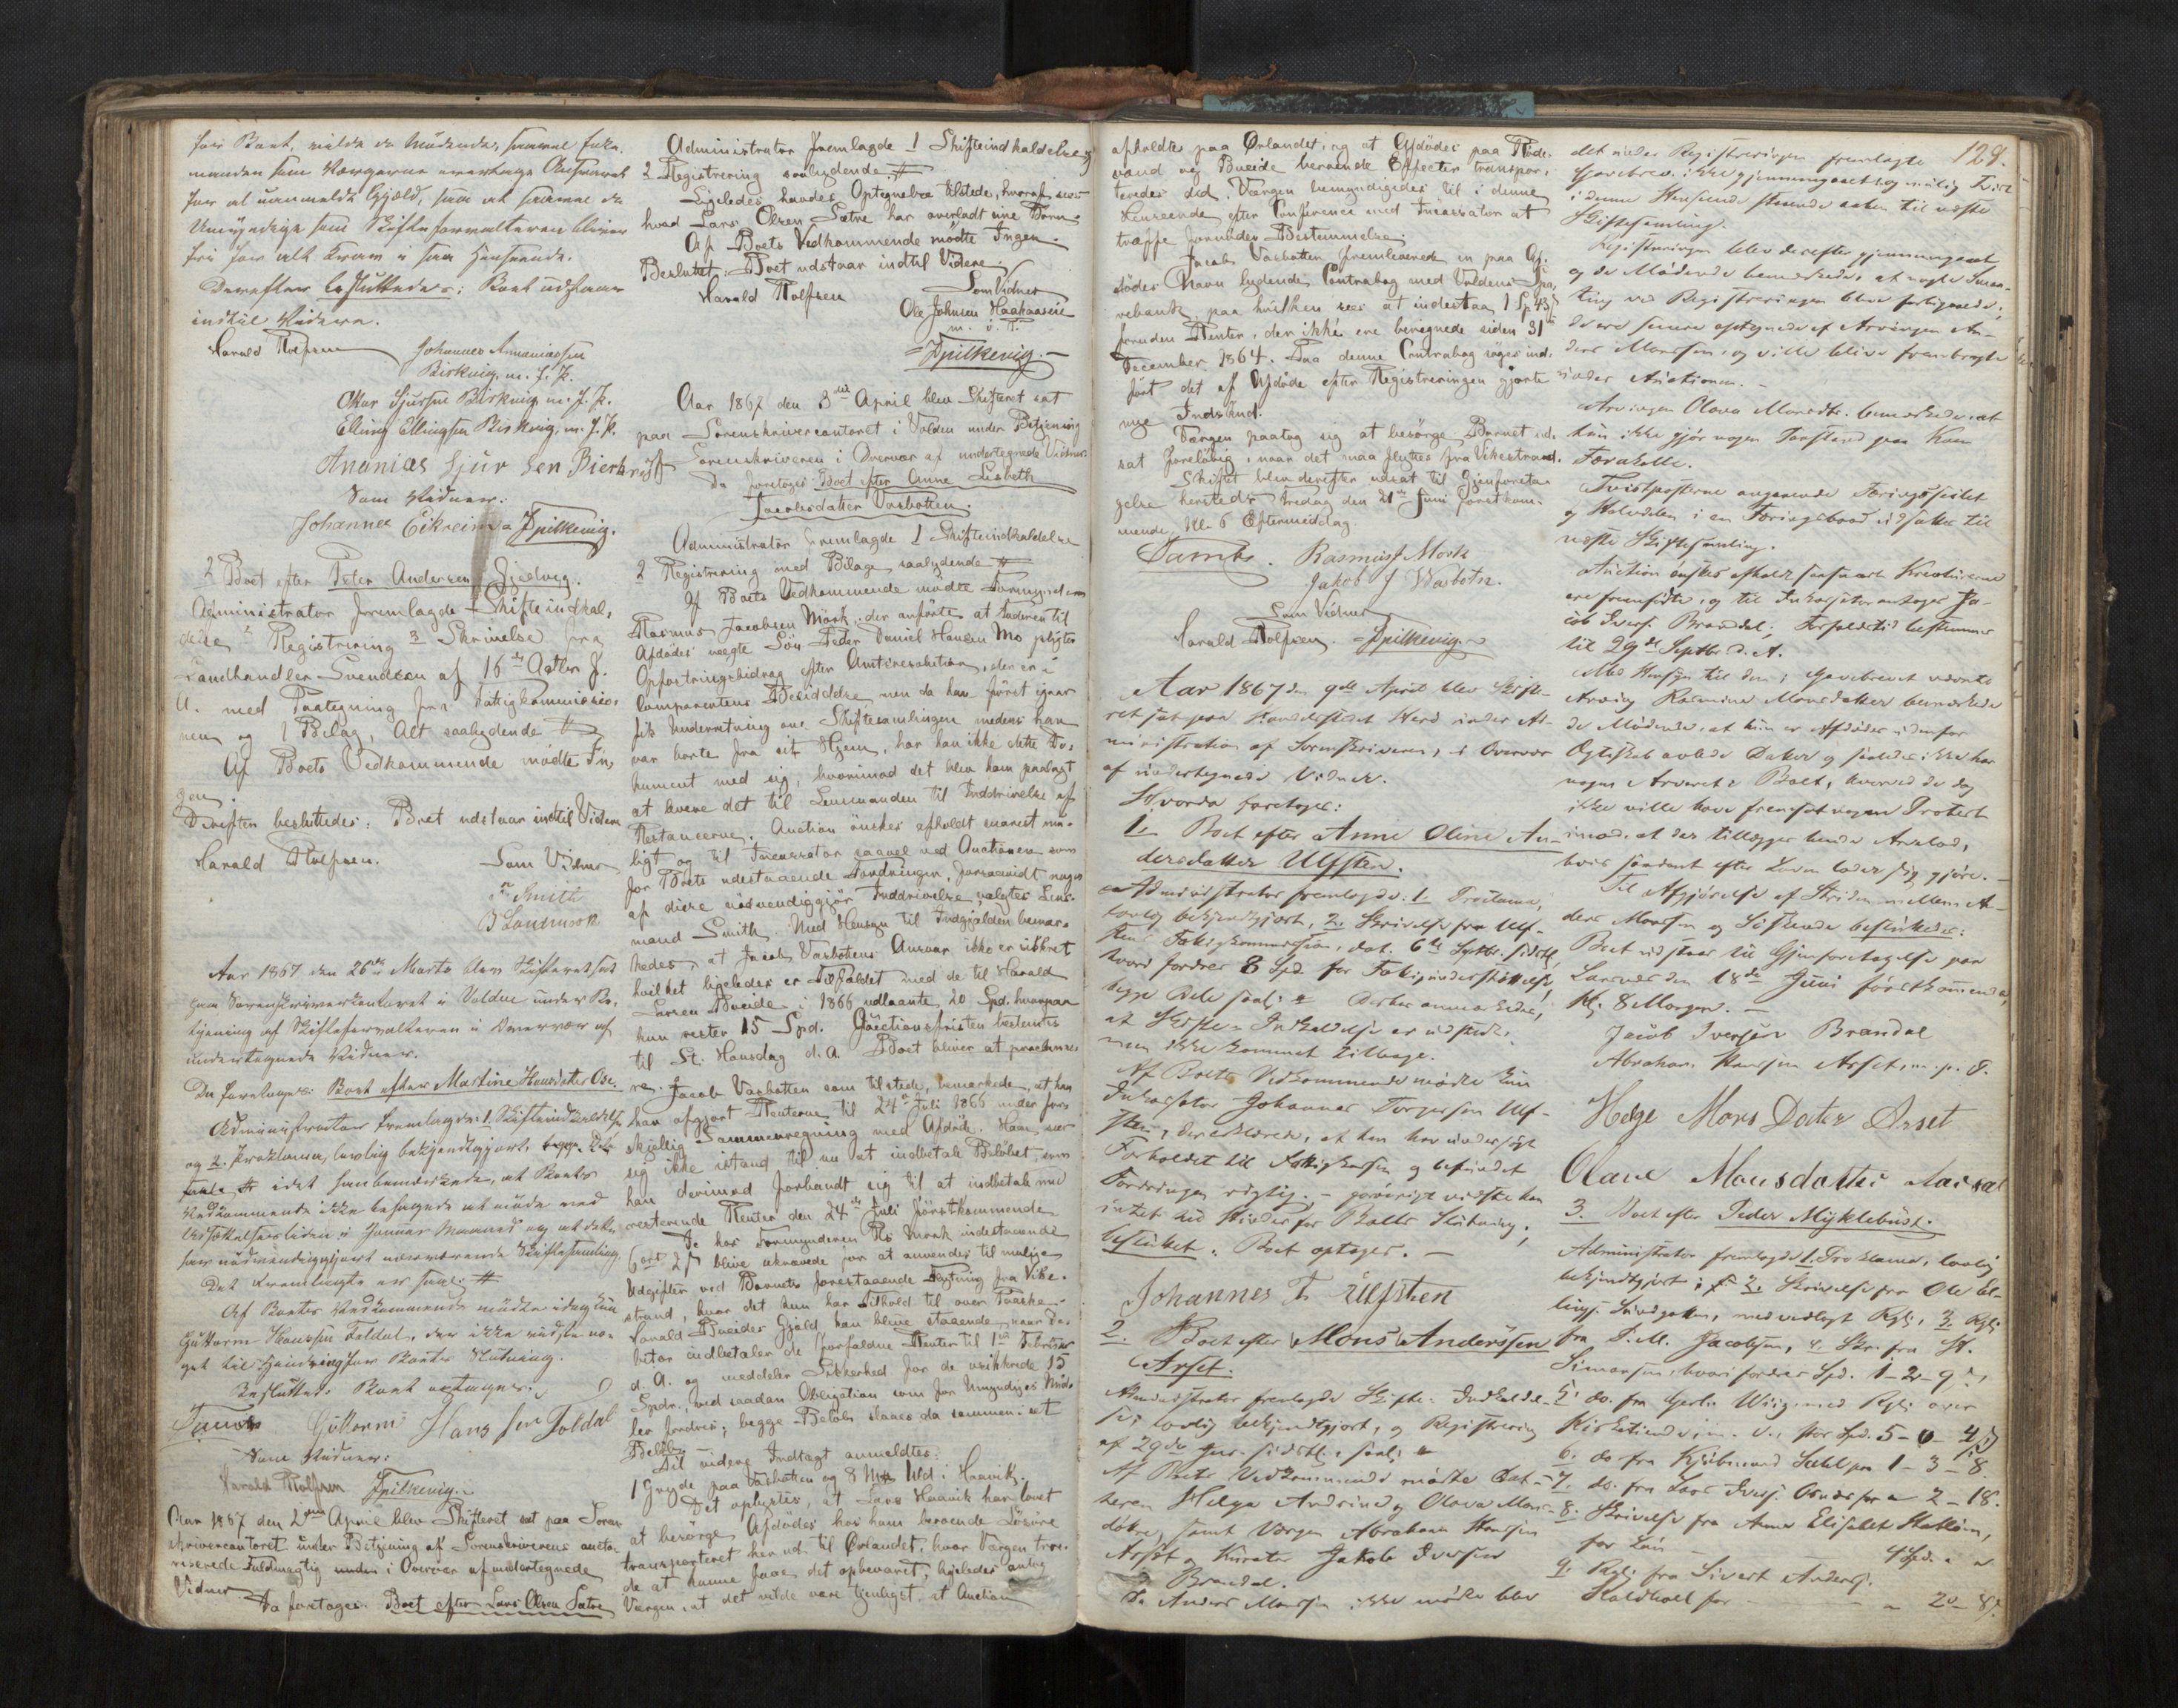 for Boet, meldte de Mødende, saavel Enke-
manden som Værgerne overtage Ansvaret
for al uanmeldt Gjæld, saa at saavel de
Umyndige som Skifteforvalteren bliver
fri for alt Krav i saa Henseende.
Derefter besluttedes: Boet udstaar
indtil Videre.
Harald Rolfsen Johannes Annaniassen
Birkevig, m. f. P.
Elling Ellingsen Birkevig, m. f. P.
Ananias Sjur Sen
Som Vidner:
Johannes Eikreim Spilkevig.
2 Boet efter Peter Andersen Gjedveg.
Administrator fremlagde 1 Skifteindkal,
delse 2 Registrering 3 Skrivelse fra
Landhandler Svendsen af 16de Octbr f.
A. med Paategning fra Fattigkommissio,
nen og 1 Bilag, Alt saalydende #
Af Boets Vedkommende mødte In,
gen.
Derefter besluttedes: Boet udstaar indtil Videre
Harald Rolfsen. Som Vidner
Smith
Aar 1867 den 26de Marts blev Skifteret sat
paa Sorenskriverkontoret i Volden under Be,
tjening af Skifteforvalteren i Overvær af
undertegnede Vidner.
Da foretoges: Boet efter Martine Hansdatter Ose.
Administrator fremlagde: 1. Skifteindkaldelse
og 2. Proklama, lovlig bekjendtgjort, begge Dele
saal. # idet han bemærkede, at Boets
Vedkommende ikke besøgede at møde ved
i Januar Maaned og at dette
har nødvendiggjort nærværende Skiftesamling.
Det Fremlagte er saal. #
Af Boets Vedkommende mødte idag kun
Guttorm Hanssen Foldal, der ikke vidste no-
get til Hinder for Boets Slutning.
Besluttet: Boet optages.
Guttorm Hans sen Foldal
Som Vidner:
Harald Rolfsen Spilkevig.
Aar 1867 den 2den April blev Skifteret sat paa Soren
skrivercontoret under Betjening af Sorenskriverens aucto-
riserede Fuldmægtig i Overvær af undertegnede
Vidner
Da foretoges. Boet efter Lars Olsen Sætre
Administrator fremlagde 1 Skifteindkaldelse og
2 Registrering saalydende. #
Ligeledes havdes Optegnelse tilstede, hvoraf sees
hvad Lars Olsen Sætre har overladt sine Børn.
Af Boets Vedkommende mødte Ingen.
Besluttet: Boet udstaar indtil Videre.
Harald Rolfsen Som Vidner
Ole Johnsen
m. i. P.
Spilkevig.
Aar 1867 den 3die April blev Skifteret sat
paa Sorenskrivercontoret i Volden under Betjening
Sorenskriveren i Overvær af undertegnede Vidner
Da foretoges Boet efter Anne Lisbeth
Jacobsdatter Varbotten.
Administrator fremlagde 1 Skifteindkaldelse
2 Registrering med Bilage saalydende #
Af Boets Vedkommende mødte Formynderen
Rasmus Jacobsen Mørk, der anførte at Faderen til
Afdødes uægte Søn Peder Daniel Hansen Mo pligter
Opfostringsbidrag efter Amtsresolution, der er i
Comparentens Besiddelse men da han først igaar
fik Underretning om Skiftesamlingen medens han
var borte fra sit Hjem, har han ikke dette Do-
kument med sig; hvorimod det blev ham paalagt
at levere det til Lensmanden til Inddrivelse af
Restancerne. Auction ønskes afholdt snarest mu-
ligt og til Incassator saavel ved Auctionen som
for Boets udestaaende Fordringer, forsaavidt nogen
af disse nødvendiggjør Inddrivelse, valgtes Lens-
mand Smith. Med Hensyn til Indgjælden bemær-
kedes, at Jacob Varbottens Ansvar ikke er sikkret
hvilket ligeledes er Tilfældet med de til Harald
Larsen Bueide i 1866 udlaante 20 Spd. hvorpaa
han rester 15 Spd. Auctionsfristen bestemtes
til St. Hansdag d. A. Boet bliver at proclamere.
Jacob Varbotten som tilstede, bemærkede, at han
har afgjort Renterne til 24de Juli 1866 under for-
skjellig Sammenregning med Afdøde. Han saae
sig ikke istand til nu at indbetale Beløbet, men
han derimod forbandt sig til at indbetale med
resterende Renter den 24de Juli førstkommende.
De hos Formynderen Rs Mørk indestaaende
6 ort 2 ß blive ukrævede for at anvendes til mulige
Udgifter ved Barnets forestaaende Flytning fra Vike-
strand, hvor det kun har Tilhold til over Paaske.
Harald Bueides Gjæld kan blive staaende, naar De-
bitor indbetaler de forfaldne Renter til 1ste Februar
d. A. og meddeler Sikkerhed for de usikkrede 15
Spdr., ved saadan Obligation som for Umyndiges Mid-
ler fordres; begge Beløb slaaes da sammen i et
Beløb.
Til videre Indtægt anmeldtes:
1 Gryde paa Varbotten og 8 Uld i Haavik.
Det oplystes, at Lars Haavik har lovet
at besørge Afdødes hos ham beroende Løsøre
transporteret her ud til Ørlandet, hvor Værgen tro-
de at kunne faae det opbevaret, ligeledes antog
Værgen, at det vilde være tjenligst at Auction
128.
afholdtes paa Ørlandet, og at Afdødes paa
vand og Bueide beroende Effecter transpor,
teredes did. Værgen bemyndigedes til i denne
Henseende efter Conference med Incassator at
træffe fornøden Bestemmelse.
Jacob Varbotten fremleverede en paa Af-
dødes Navn lydende Contrabog med Voldens Spa,
rebank, paa hvilken sees at indestaa 1 Sp 43 ß
foruden Renter, der ikke ere beregnede siden 31te
December 1864. Paa denne Contrabog søges ind,
ført det af Afdøde efter Registreringen gjorte
nye Indskud.
Værgen paatog sig at besørge Barnet ud,
sat foreløbig, naar det maa flyttes fra Vikestrand.
Skiftet blev derefter udsat til Gjenforeta-
gelse hersteds Fredag den 21de Juni førstkom-
mende, Kl. 6 Eftermiddag
Rasmus J Mørk
Jakob J Warbotn.
Som Vidner
Harald Rolfsen. Spilkevig.
Aar 1867 den 9de April blev Skifte-
ret sat paa Handelsstedet Herö under Ad-
ministration af Sorenskriveren, i Overvær
af undertegnede Vidner.
Hvorda foretoges:
1. Boet efter Anne Oline An-
dersdatter Ulfsten.
Administrator fremlagde: 1. Proclama,
lovlig bekjendtgjort, 2. Skrivelse fra Ulf-
stens Fattigkommission, dat. 6te Septbr. sidstl.
hvori fordres 8 Spd. for Fattigunderstøttelse,
begge Dele saal. # Derhos anmærkedes,
at Skifte-Indkaldelse er udstedt,
men ikke kommet tilbage.
Af Boets Vedkommende mødte kun
Inkassator Johannes Torgersen Ulf-
sten, der erklærede, at han har undersøgt
Forholdet til Fattigkassen og befundet
Fordringen rigtig. - forøvrigt vidste han
intet til Hinder for Boets Slutning;
besluttet: Boet optages. -
Johannes T. Ulfsten
2. Boet efter Mons Anderssen
Arset.
Administrator fremlagde Skifte-Indkaldel-
se, lovlig bekjendtgjort, og Registrering
af 29de sidstl. saal. #
Af Boets Vedkommende mødte Døt-
trene Helge Andrine og Olava Mons-
døtre, samt Værgen Abraham Hansen
Arset og Kurator Jakob Iversen
Brandal.
Da Anders Monsen ikke mødte blev
det under Registreringen fremlagte
Gavebrev ikke gjennemgaaet og mulig Tvist
i denne Henseende staaende aaben til næste
Skiftesamling.
Registreringen blev derefter gjennemgaaet
og de Mødende bemærkede, at nogle Smaa-
ting ved Registreringen bleve forbigaaede;
de ere senere optegnede af Arvingen An-
ders Monssen, og ville blive frembragte
under Auctionen. -
Arvingen Olava Monsdtr. bemærkede, at
hun ikke gjør nogen Paastand paa
Tvistposterne angaaende Færingsseilet
og Halvdelen i en Færingsbaad udsattes til
næste Skiftesamling.
Auction ønskes afholdt saasnart Kreaturerne
ere fremfødte, og til Inkassator antages Ja-
cob Iversen Brandal; Forfaldstid bestemmes
til 29de Septbr. d. A.
Med Hensyn til den i Gavebrevet nævnte
Arving Rasmine Monsdatter bemærkede
de Mødende, at hun er Afdødes udenfor
Ægteskab avlede Datter og saaledes ikke har
nogen Arveret i Boet, hvorved de dog
ikke ville have fremsat nogen Protest
imod, at der tillægges hende Arvelod,
hvis saadant efter Loven lader sig gjøre. -
Til Afgjørelse af Striden mellem An-
ders Monssen og Søskende besluttedes:
Boet udstaar til Gjenforetagelse paa
Larsnæs den 18de Juni førstkommende,
Kl. 8 Morgen. -
Jacob Iversen Brandal
Abraham Hansen Arset, m. p. P.
Helge Mons Dotter Arset
Olave Monsdatter
3. Boet efter Peder Myklebust.
Administrator fremlagde 1. Proklama, lovlig
bekjendtgjort; 2. Skrivelse fra Ole El-
lings. med vedlagt Regn., 3. Regn.
fra P. M. Jacobsen, 4. Skr. fra St.
Simonsen, hvori fordres Spd. 1-2-9;
5. do. fra Gert. Wiig med Regn. over
Kirketiende, stor Spd. 5-0-4 ß
6. do fra Kjøbmand paa 1-3-8.
7. do. fra Lars Iversen for 2-18.
8. Skrivelse fra Anne Elisabet
for Løn 4 Spd.
9. Regn. fra Sivert Anders.
Koldholt for 2-8 ß.